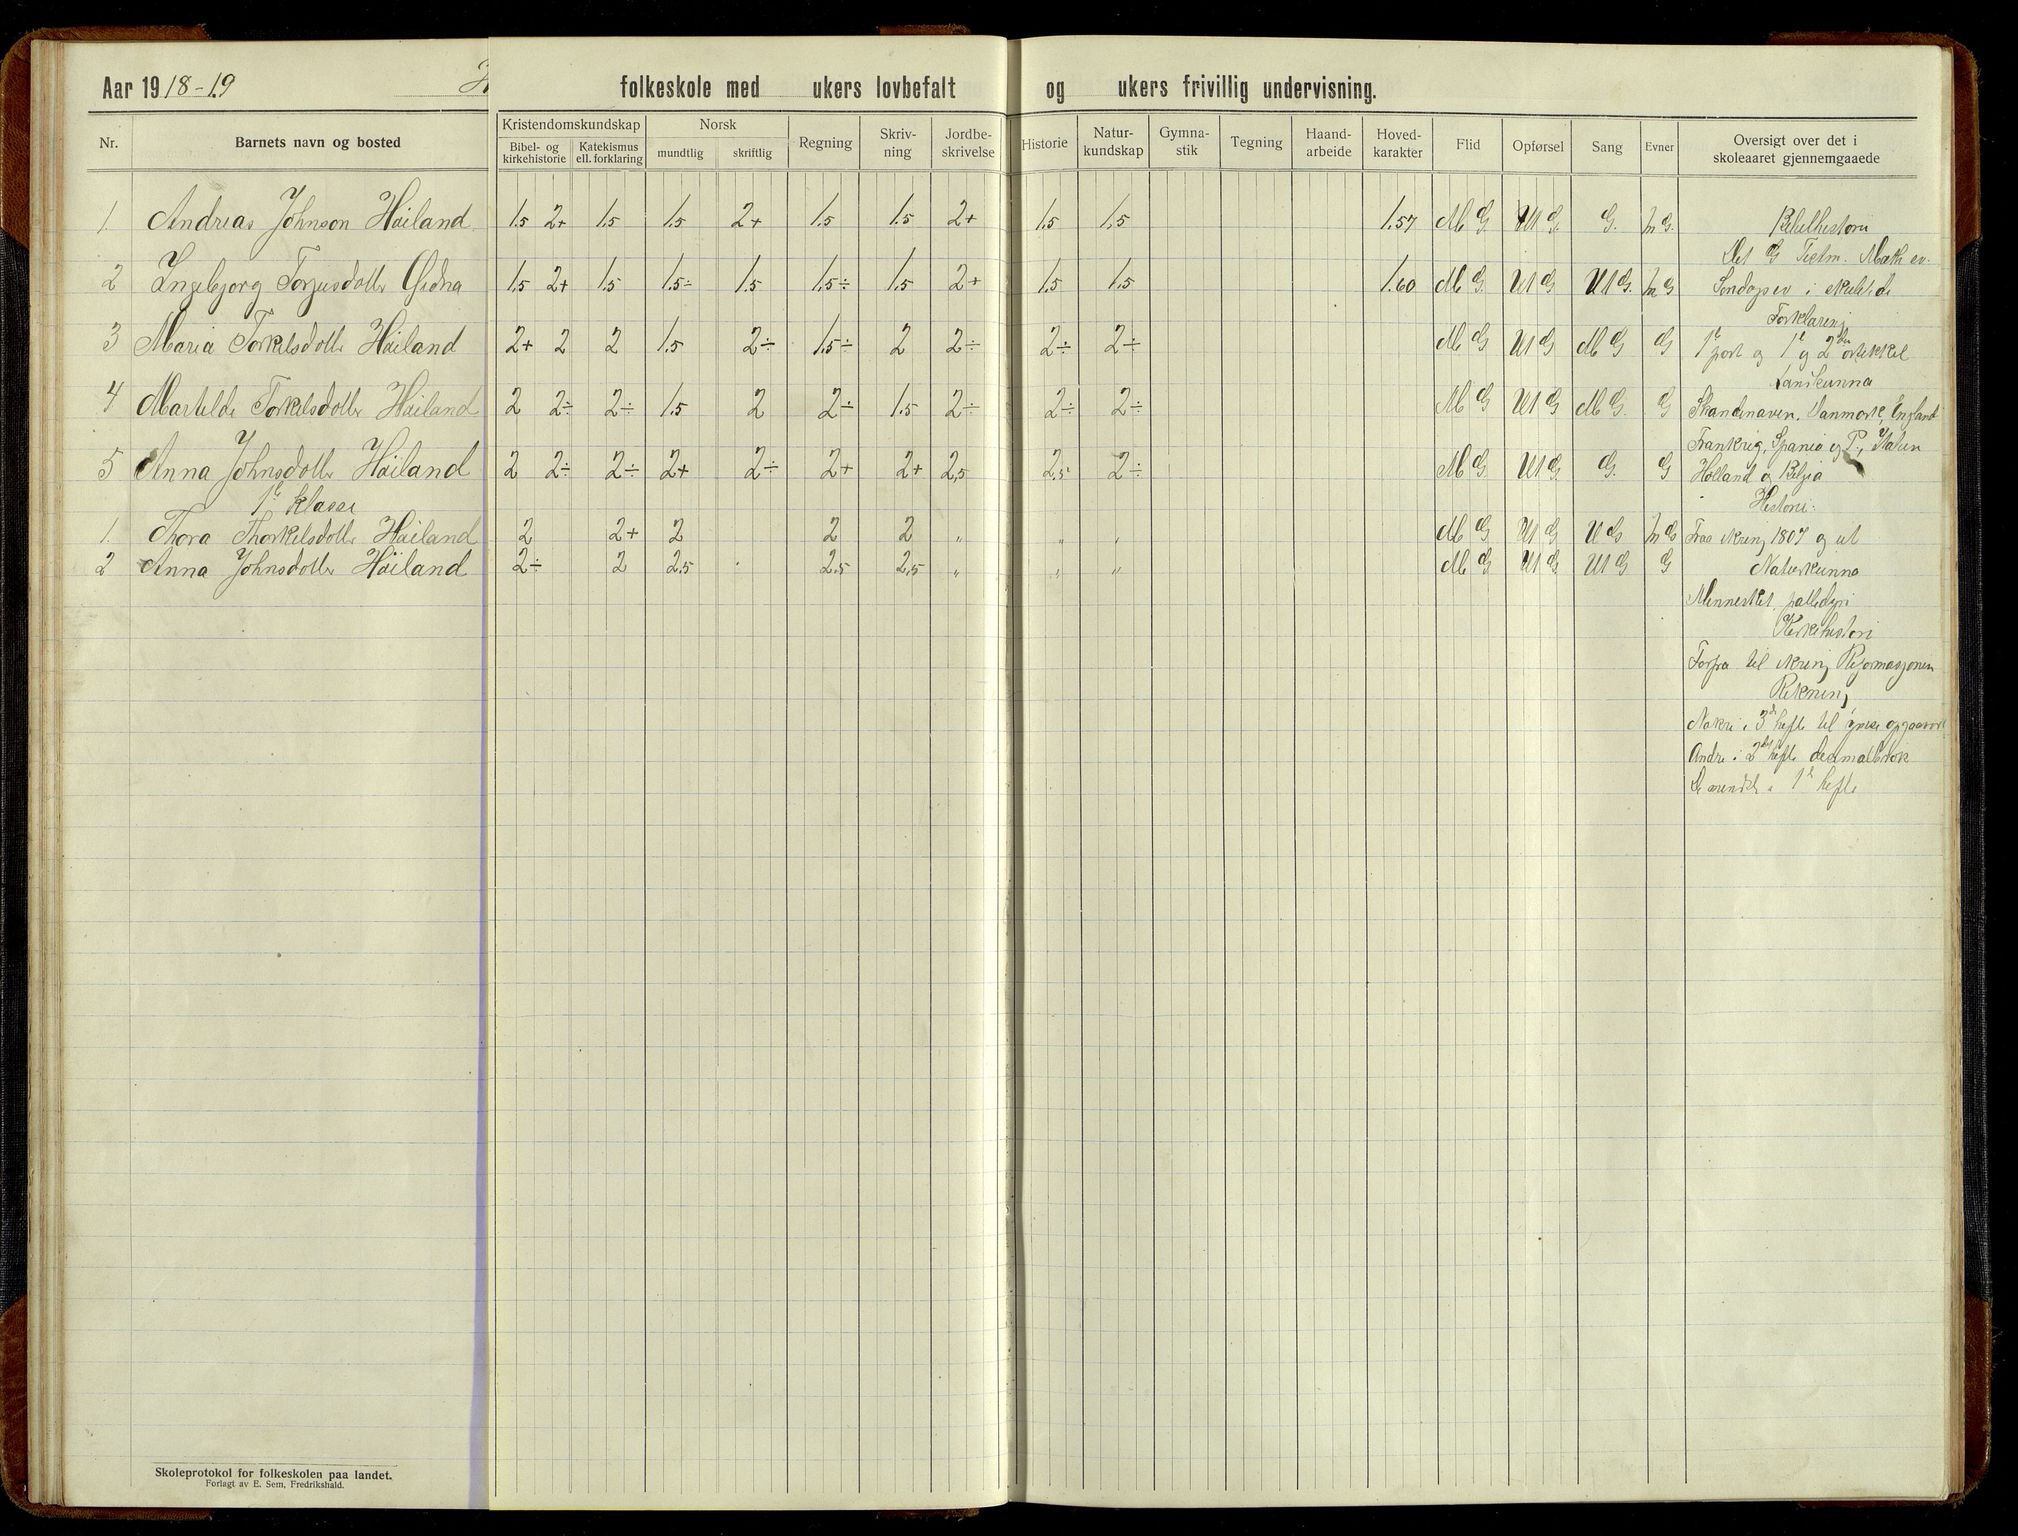 Aar 1918-19 folkeskole med ukers lovbefalt og ukers frivillig undervisning.
Nr. Barnets navn og bosted Kristendomskundskap Bibel- og kirkehistorie Katekismus ell. forklaring Norsk mundtlig skriftlig Regning Skriv-ning Jordbe-skrivelse Historie Natur-kundskap Gymna-stik Tegning Haand-arbeide Hoved-karakter Flid Opførsel Sang Evner Oversigt over det i skoleaaret gjennemgaaede
1. Andreas Johnson Håiland 1.5 2+ 1.5 1.5 2+ 1.5 1.5 2+ 1.5 1.5 1.57 M G. Ut G. G. M G. Bibelhistori
Det G Testm.
2 Ingebjorg Torjusdottr 1.5 2+ 1.5 1.5÷ 1.5 1.5÷ 1.5 2+ 1.5 1.5 1.60 M G. Ut G Ut G. M G Sondagsev i
Forklaring
3 Maria Torkelsdottr Håiland 2+ 2 2 1.5 2÷ 1.5÷ 2 2÷ 2÷ 2÷ M G Ut G M G G 1e part og 1e og 2den artikkel
Landkunna
4 Martilde Torkelsdottr Håiland 2 2÷ 2÷ 1.5 2 2÷ 1.5 2÷ 2÷ 2÷ M G Ut G M G. G Skandinaven. Danmork, England
Frankrig, Spania og P., Italien
5 Anna Johnsdottr Håiland 2 2÷ 2÷ 2+ 2÷ 2+ 2+ 2,5 2.5 2÷ M G. Ut G. G. G Holland og Belgia
1e klasse
Historie:
1. Thora Thorkelsdottr Håiland 2 2+ 2 2 2 „ „ „ M G. Ut G Ut G M G Fraa ikring 1807 og ut
2 Anna Johnsdottr Håiland 2÷ 2 2.5 2.5 2,5 „ „ „ M G Ut G. Ut G G Naturkunna
Mennesket, pattedyri
Kirkehistori
Forfra til ikring Reformasjonen
Rekning
Nokre i 3de hefte til
Andre i 2det hefte desimalbrok
1e hefte
Skoleprotokol for folkeskolen paa landet.
Forlagt av E. Sem, Fredrikshald.